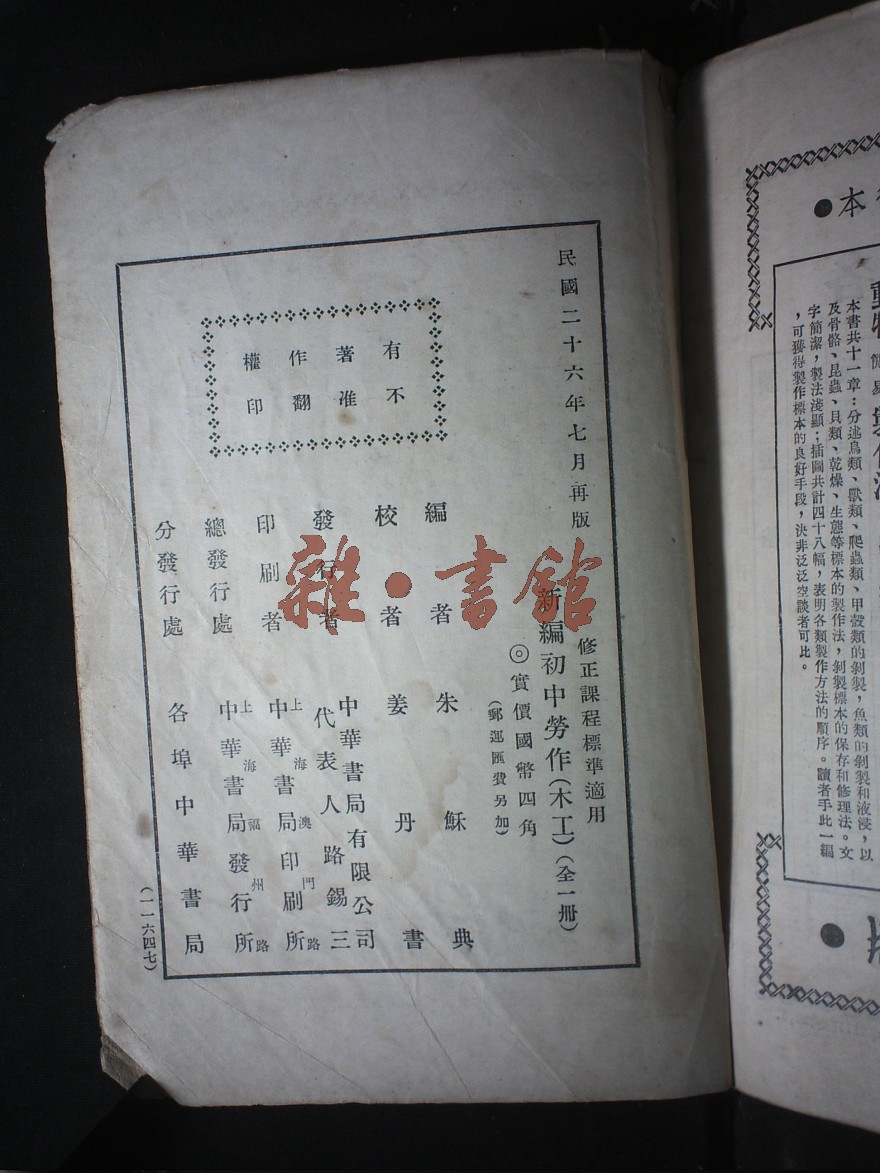 民國二十六年七月再版
修正課程標準適用
新編初中勞作(木工)(全一冊)
◎實價國幣四角
(郵運匯費另加)
有不
著准
作翻
權印
編者 朱穌典
校者 姜丹書
發行者 中華書局有限公司
代表人路錫三
印刷者 上海澳門路
中華書局印刷所
總發行處 上海福州路
中華書局發行所
分發行處 各埠中華書局
(一一六四七)
雜·書館
●本
本書共十一章:分述鳥類、獸類、爬蟲類、甲殼類的剝製,魚類的剝製和液浸,以
及骨骼、昆蟲、貝類、乾燥、生態等標本的製作法,剝製標本的保存和修理法。文
字簡潔,製法淺顯;插圖共計四十八幅,表明各類製作方法的順序。讀者手此一編
,可獲得製作標本的良好手段,決非泛泛空談者可比。